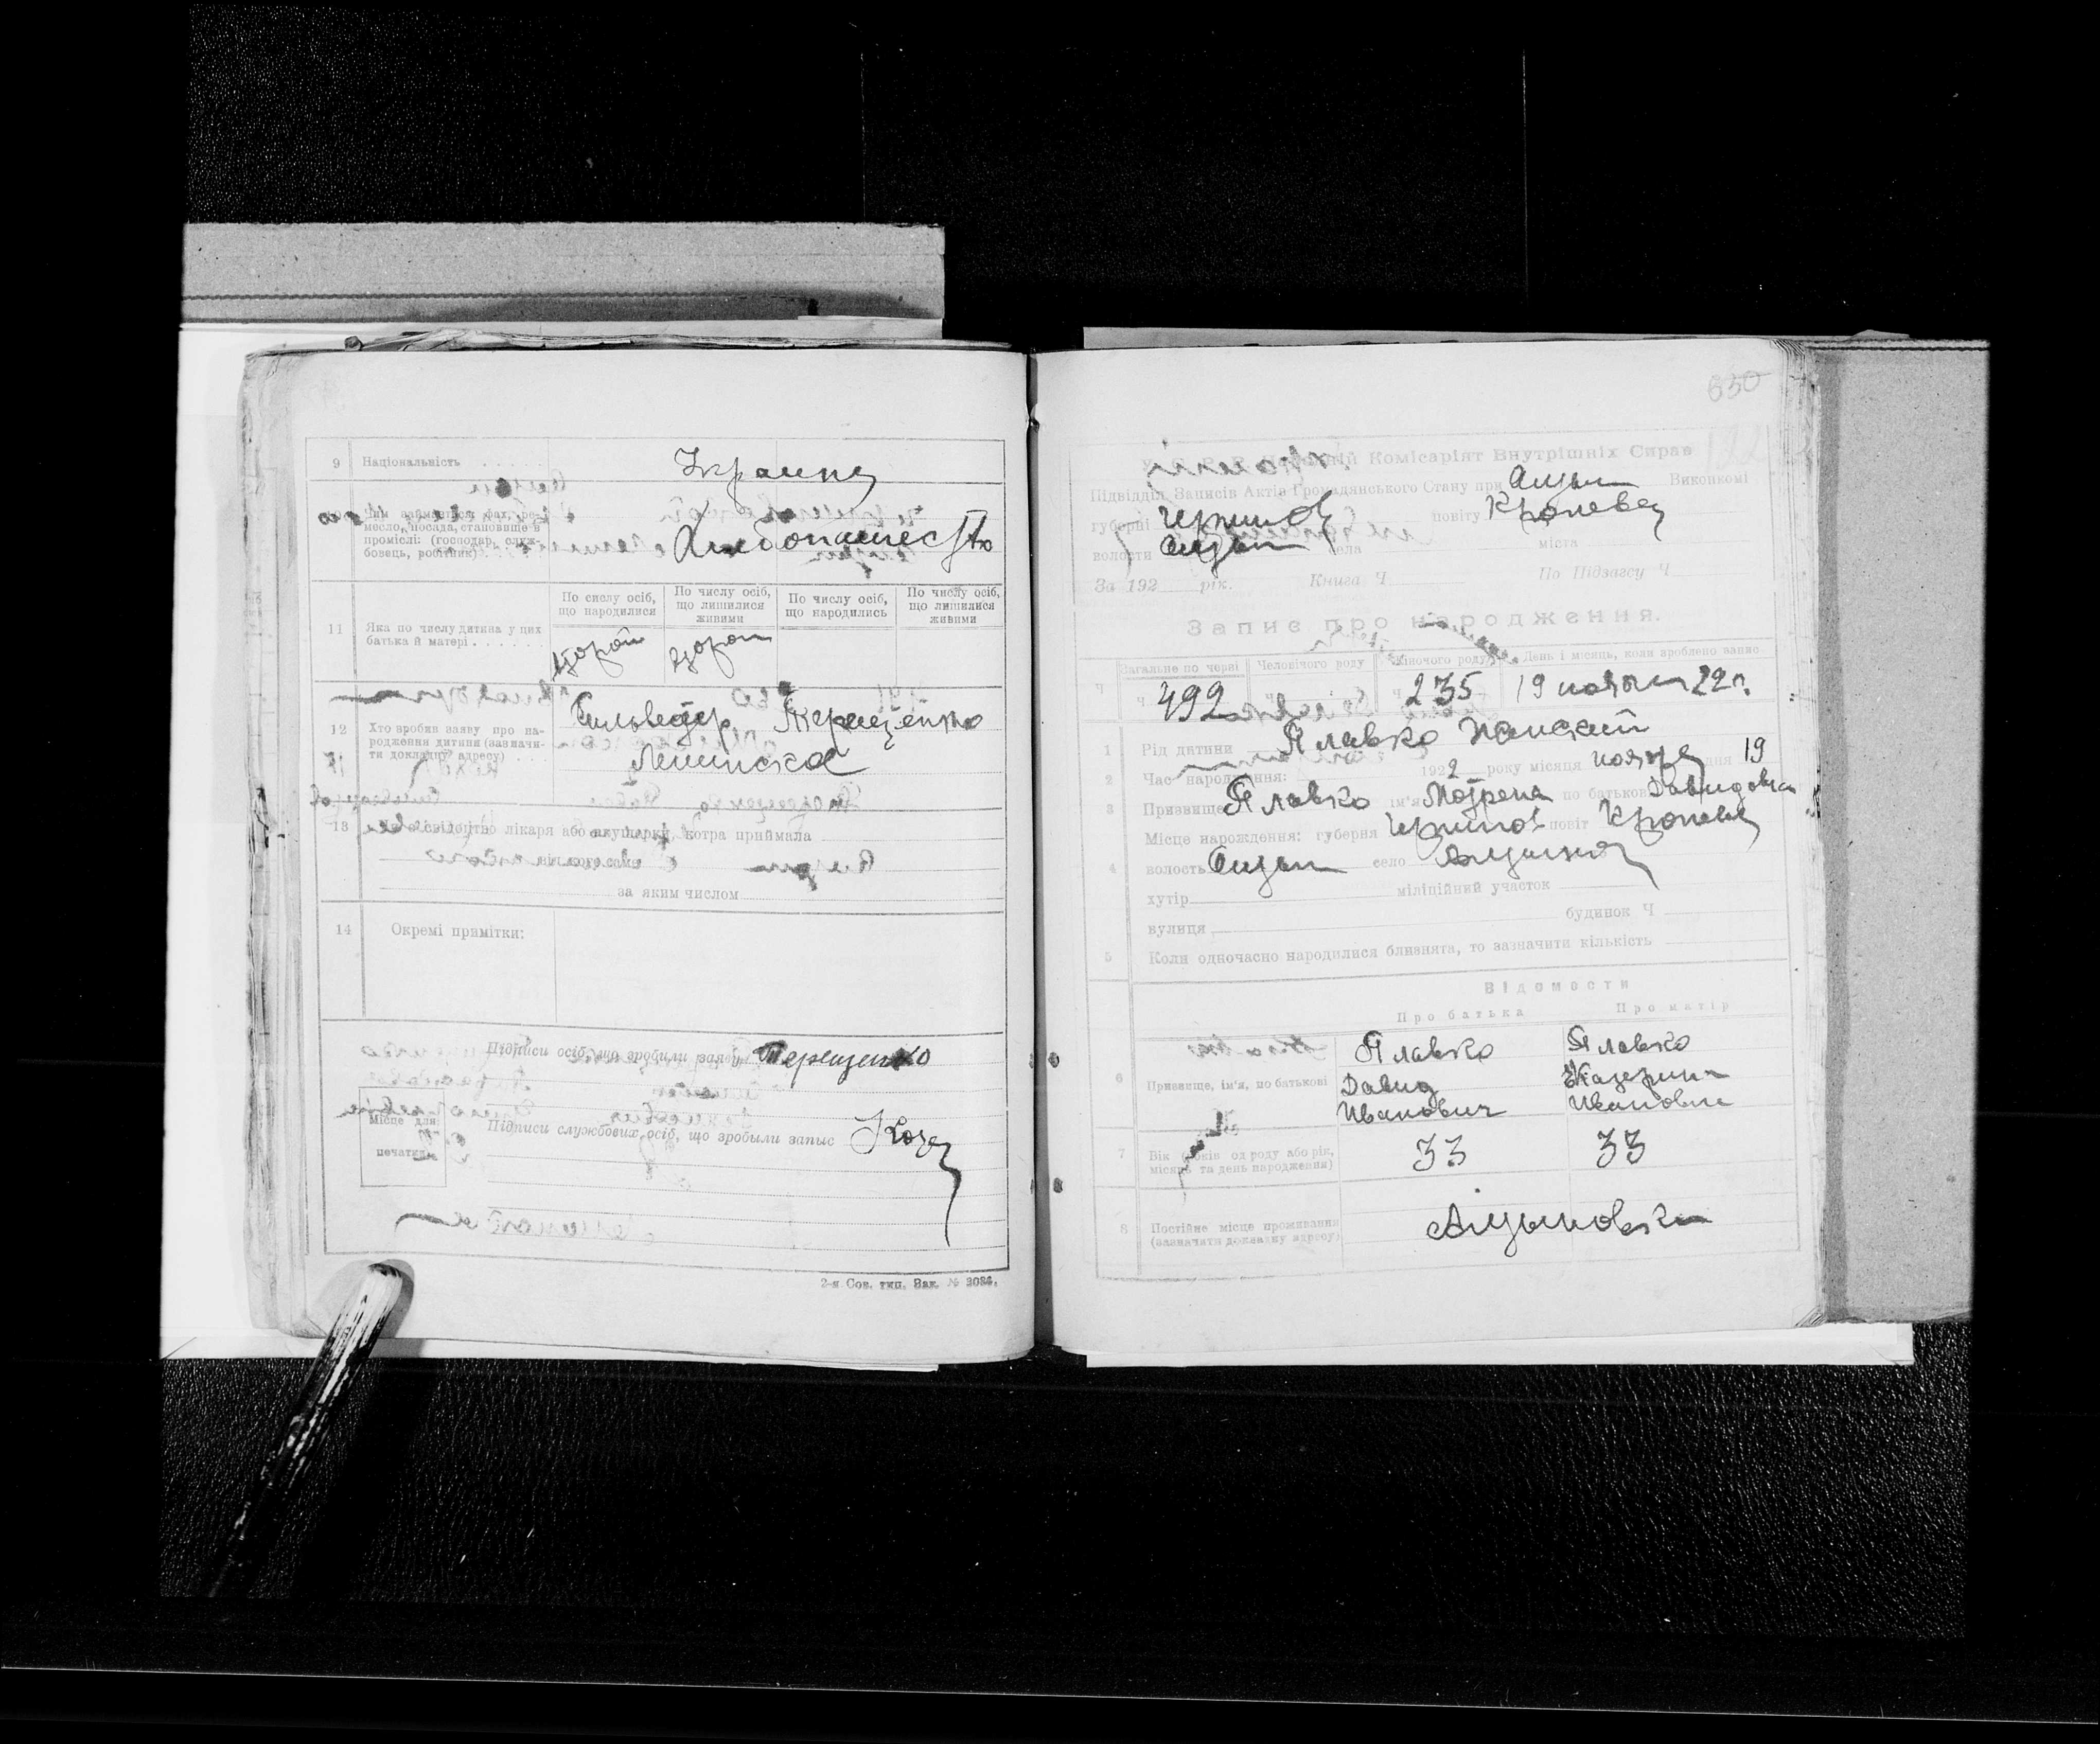 9 Національність Украине
Чим займається: фах, ре-
месло, посада, становище в
промислі: (господар, служ-
бовець, робітник) Хлебопашество
По числу осіб, що народилися
По числу осіб, що лишилися живими
По числу осіб, що народились
По числу осіб, що лишилися живими
11 Яка по числу дитина у цих
батька й матері
второй второй
12 Хто зробив заяву про на-
родження дитини (зазначи-
ти докладну адресу)
Сильвестр Терещенко
Ленинска
13 свідоцтво лікаря або акушерки, котра приймала
за яким числом
14 Окремі примітки:
Підписи осіб, що зробили заяву Терещенко
Місце для печатки
Підписи службових осіб, що зробыли запыс Коза
2-я Сов. тип. Зак. № 3034.
630
Комісаріят Внутрішніх Справ
Підвідділ Записів Актів Громадянського Стану при Виконкомі
губерні Чернигов повіту Кролевец
волости села міста
За 192 рік. Книга Ч По Підзагсу Ч
Запис про народження.
Загальне по черзі Человічого роду Жіночого роду День і місяць, коли зроблено запис
Ч 492 Ч Ч 235 19 ноября 22 г.
1 Рід дитини Ялавко женский
2 Час народження: 1922 року місяця ноября дня 19
3 Призвище Ялавко ім'я Мотрена по батькові Давидовна
4 Місце народження: губерня Чернигов повіт Кролевец
волость село
хутір міліційний участок
вулиця будинок Ч
5 Коли одночасно народилися близнята, то зазначити кількість
Відомости
Про батька Про матір
6 Призвище, ім'я, по батькові
Ялавко Ялавко
Давид Катерина
Иванович Ивановна
7 Вік (років од роду або рік,
місяць та день народження) 33 33
8 Постійне місце проживання
(зазначити докладну адресу)